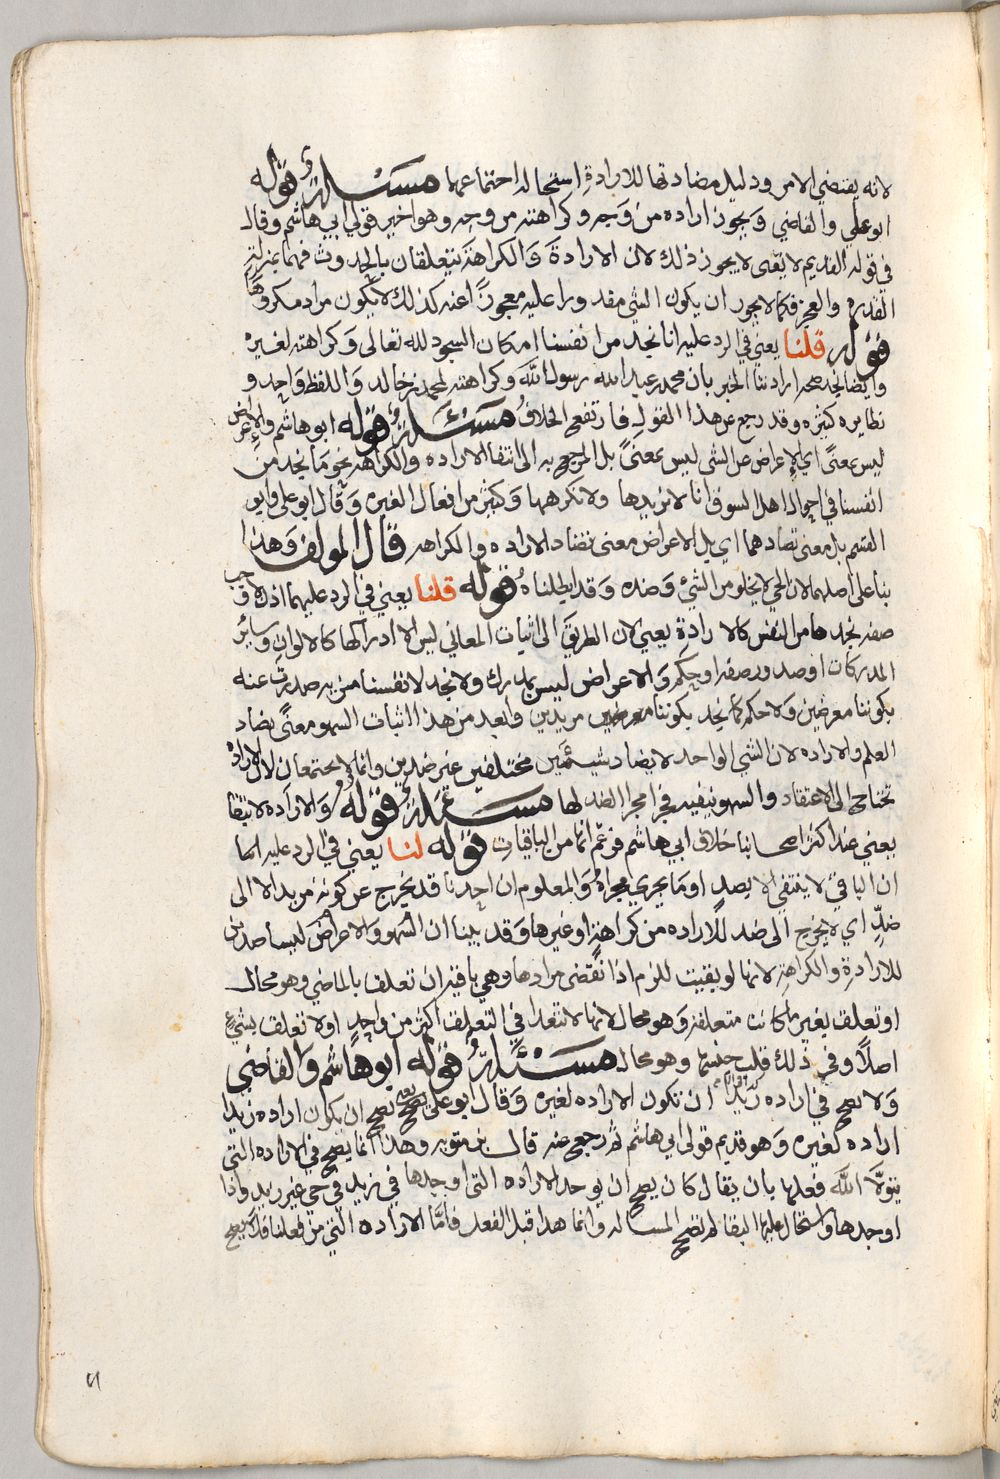 لانه يقتضي الامر ودليل مضادتها للارادة استحالة اجتماعهما مسئلة قوله
ابو علي والقاضي ويجوز ارادة من وجه وكراهته من وجه وهو اخير قولي ابي هاشم وقال
في قوله القديم لا يعني لا يجوز ذلك لان الارادة والكراهة يتعلقان بالحدوث فهما بمنزلة
القدرة والعجز فكما لا يجوز ان يكون الشي مقدورا عليه معجوزا عنه كذلك لا يكون مرادا مكروها
قوله قلنا يعني في الرد عليه انا نجد من انفسنا امكان السجود لله تعالى وكراهته لغيره
وايضا نجد صحة ارادتنا الخبر بان محمد بن عبد الله رسول الله وكراهته لمحمد بن خالد واللفظ واحد و
نظايره كثيره وقد رجع عن هذا القول فارتفع الخلاف مسئلة قوله ابو هاشم والاعراض
ليس بمعنى اي الاعراض عن الشي ليس بمعنى بل المرجع به الى انتفا الاراده والكراهة نحو ما نجد من
انفسنا في احوال اهل السوق انا لا نريدها ولا نكرهها وكثير من افعال الغير وقال ابو علي وابو
القسم بل معنى تضادهما اي بل الاعراض معنى تضاد الاراده والكراهه قال المولف وهذا
بنا على اصلهما لان الحي لا يخلو من الشي وضده وقد ابطلناه قوله قلنا يعني في الرد عليهما اذن لاوجب
صفة نجدها من النفس كالارادة يعني لان الطريق الى اثبات المعاني ليس الا ادراكها كالالوان وساير
المدركات او صدور صفة او حكم والاعراض ليس بمدرك ولا نجد لانفسنا من به صدرت عنه
بكوننا معرضين ولا حكم كما نجد بكوننا مريدين وابعد من هذا اثبات السهو معنى يضاد
العلم والاراده لان الشي الواحد لا يضاد شيئين مختلفين غير ضدين وانما لا يجتمعان لان الاراده
تحتاج الى الاعتقاد والسهو ينفيه فجرا مجرا الضد لها مسئلة قوله والارادة لا تبقا
يعني عند اكثر اصحابنا خلاف ابي هاشم فزعم انها من الباقيات قوله لنا يعني في الرد عليه انما
ان الباقي لا ينتفي الا بضد او ما يجري مجراه والمعلوم ان احدنا قد يخرج عن كونه مريدا لا الى
ضد اي لا يخرج الى ضد للاراده من كراهة او غيرها وقد بينا ان السهو والاعراض ليسا ضدين
للارادة والكراهة لانها لو بقيت للزم اذا تقضى مرادها وهي باقية ان تعلق بالماضي وهو محال
او تعلق بغير ما كانت متعلقة وهو محال لانها لا تتعدا في التعلق اكثر من واحد او لا تعلق بشي
اصلا وفي ذلك قلب جنسها وهو محال مسئلة قوله ابو هاشم والقاضي
ولا يصح في ارادة زيد ان تكون الاراده لغيره وقال ابو علي يصح يعني يصح ان يكون ارادة زيد
اراده لغيره وهو قديم قولي ابي هاشم ثم رجع عنه قال بن متويه وهذا انما يصح في الاراده التي
يتولا الله فعلها بان يقال كان يصح ان يوجد الاراده التي اوجدها في زيد في حي غير زيد واذا
اوجدها واستحال عليها البقا لم تصح المساله وانما هذا قبل الفعل فاما الارادة التي من فعلنا فلا يصح